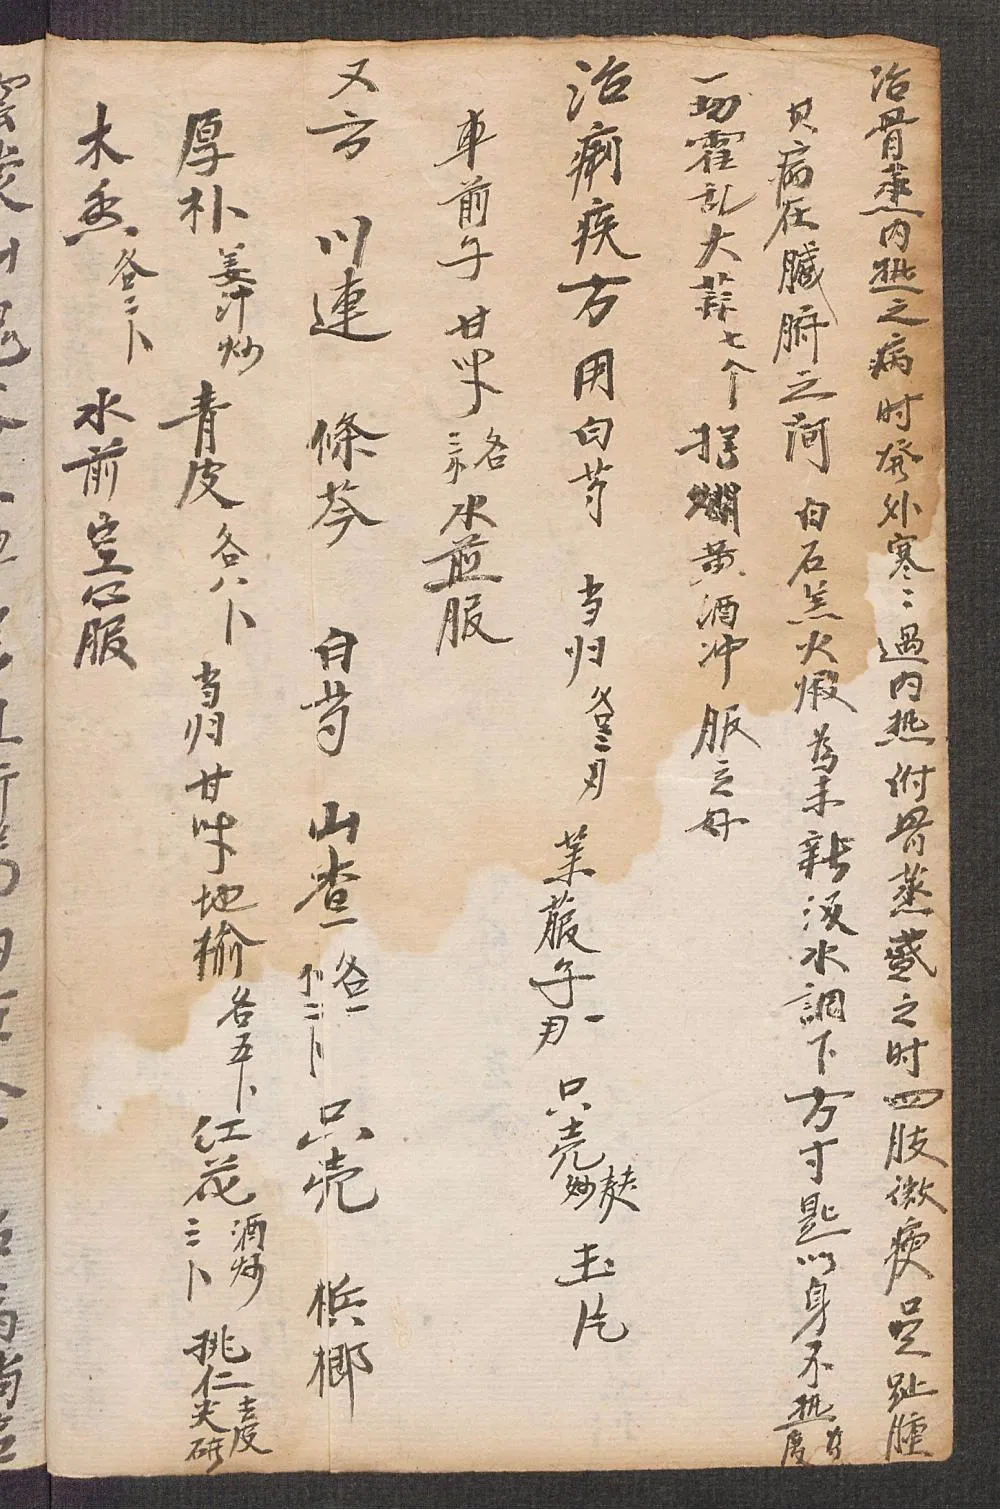 治骨蒸内热之病时發外寒〻過内热付骨蒸盛之时四肢微瘦足趾腫
其病在臓腑之间 白石羔火煆為末新汲水調下方寸匙以身不热為度
一切霍乱大蒜七个捣爛黄酒冲服之好
治痢疾方 用白芍 当归各二刄 莱菔子一刄 只壳麸炒 玉片
車前子 甘草各三分 水煎服
又方 川連 條芩 白芍 山查各一卜二卜 只壳 梹榔
厚朴姜汁炒 青皮各八卜 当归 甘草 地榆各五卜 红花酒炒三卜 挑仁去皮尖研
木香各二卜 水煎空心服